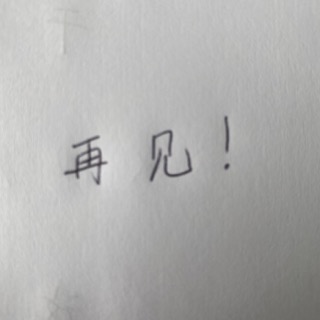 再见！